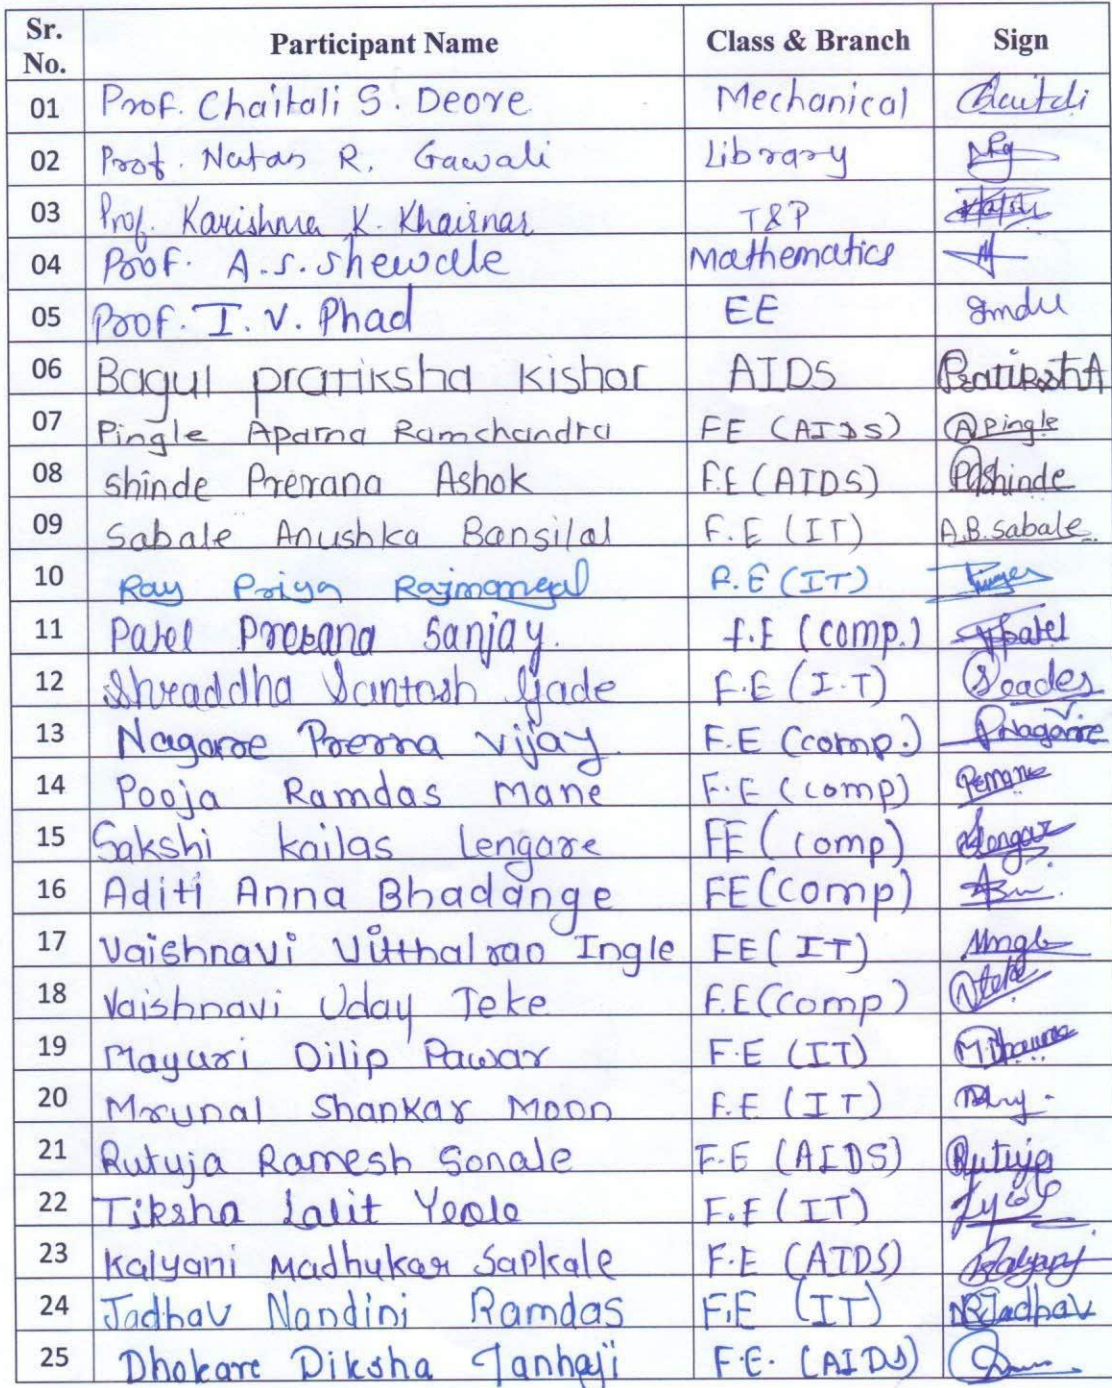 Sr. No. Participant Name Class & Branch Sign
01 Prof. Chaitali S. Deore Mechanical Chaitali
02 Prof. Natan R. Gawali Library
03 Prof. Karishma K. Khairnar T&P
04 Prof. A.S. Shewale Mathematics
05 Prof. I. V. Phad EE Indu
06 Bagul pratiksha kishor AIDS PratikshA
07 Pingle Aparna Ramchandra FE (AIDS) A Pingle
08 shinde Prerana Ashok F.E (AIDS) PAShinde
09 Sabale Anushka Bansilal F.E (IT) A.B.sabale.
10 Ray Priya Rajmangal F.E (IT)
11 Patel Prerana Sanjay. F.E (comp.) Patel
12 Shraddha Santosh Gade F.E (I.T)
13 Nagare Prerna Vijay. F.E (comp.) PNagare
14 Pooja Ramdas Mane F.E (comp)
15 Sakshi kailas lengare FE (comp)
16 Aditi Anna Bhadange FE (comp)
17 Vaishnavi Vitthalrao Ingle FE (IT)
18 Vaishnavi Uday Teke F.E (comp)
19 Mayuri Dilip Pawar F.E (IT)
20 Mrunal Shankar Moon F.E (IT)
21 Rutuja Ramesh Sonale F.E (AIDS) Rutuja
22 Tiksha Lalit Yeole F.E (IT)
23 Kalyani Madhukar Sapkale F.E (AIDS) Kalyani
24 Jadhav Nandini Ramdas F.E (IT) NRJadhav
25 Dhokare Diksha Tanhaji F.E. (AIDS)